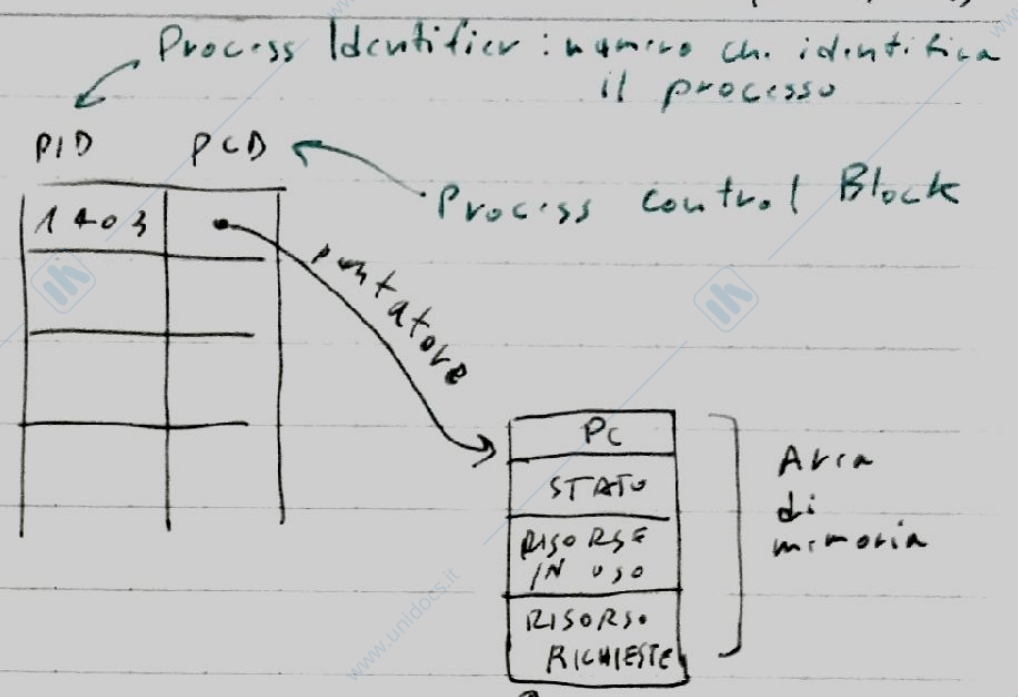 Process Identifier : numero che identifica
il processo
PID PCB
Process control Block
1403
puntatore
PC
STATO
RISORSE
IN USO
RISORSE
RICHIESTE
Area
di
memoria
www.unidocs.it